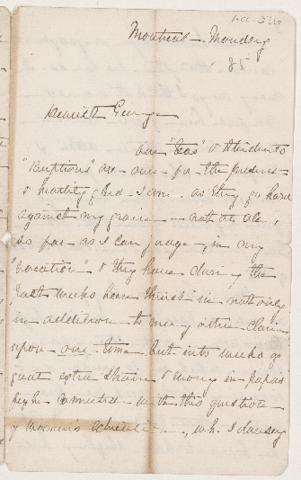 Montreal - Monday
85
Dearest George
Our "Teas" & attendants
"receptions" are over for the present
& heartily glad I am. as they go hard
against my grain - not at all,
so far as I can judge - in my
"vocation" & they have during the
last weeks been thrust in
in addition to many other claims
upon one's time. but into weeks of
great extra strain & worry in Papa's
with this question
of women's education, wh. I